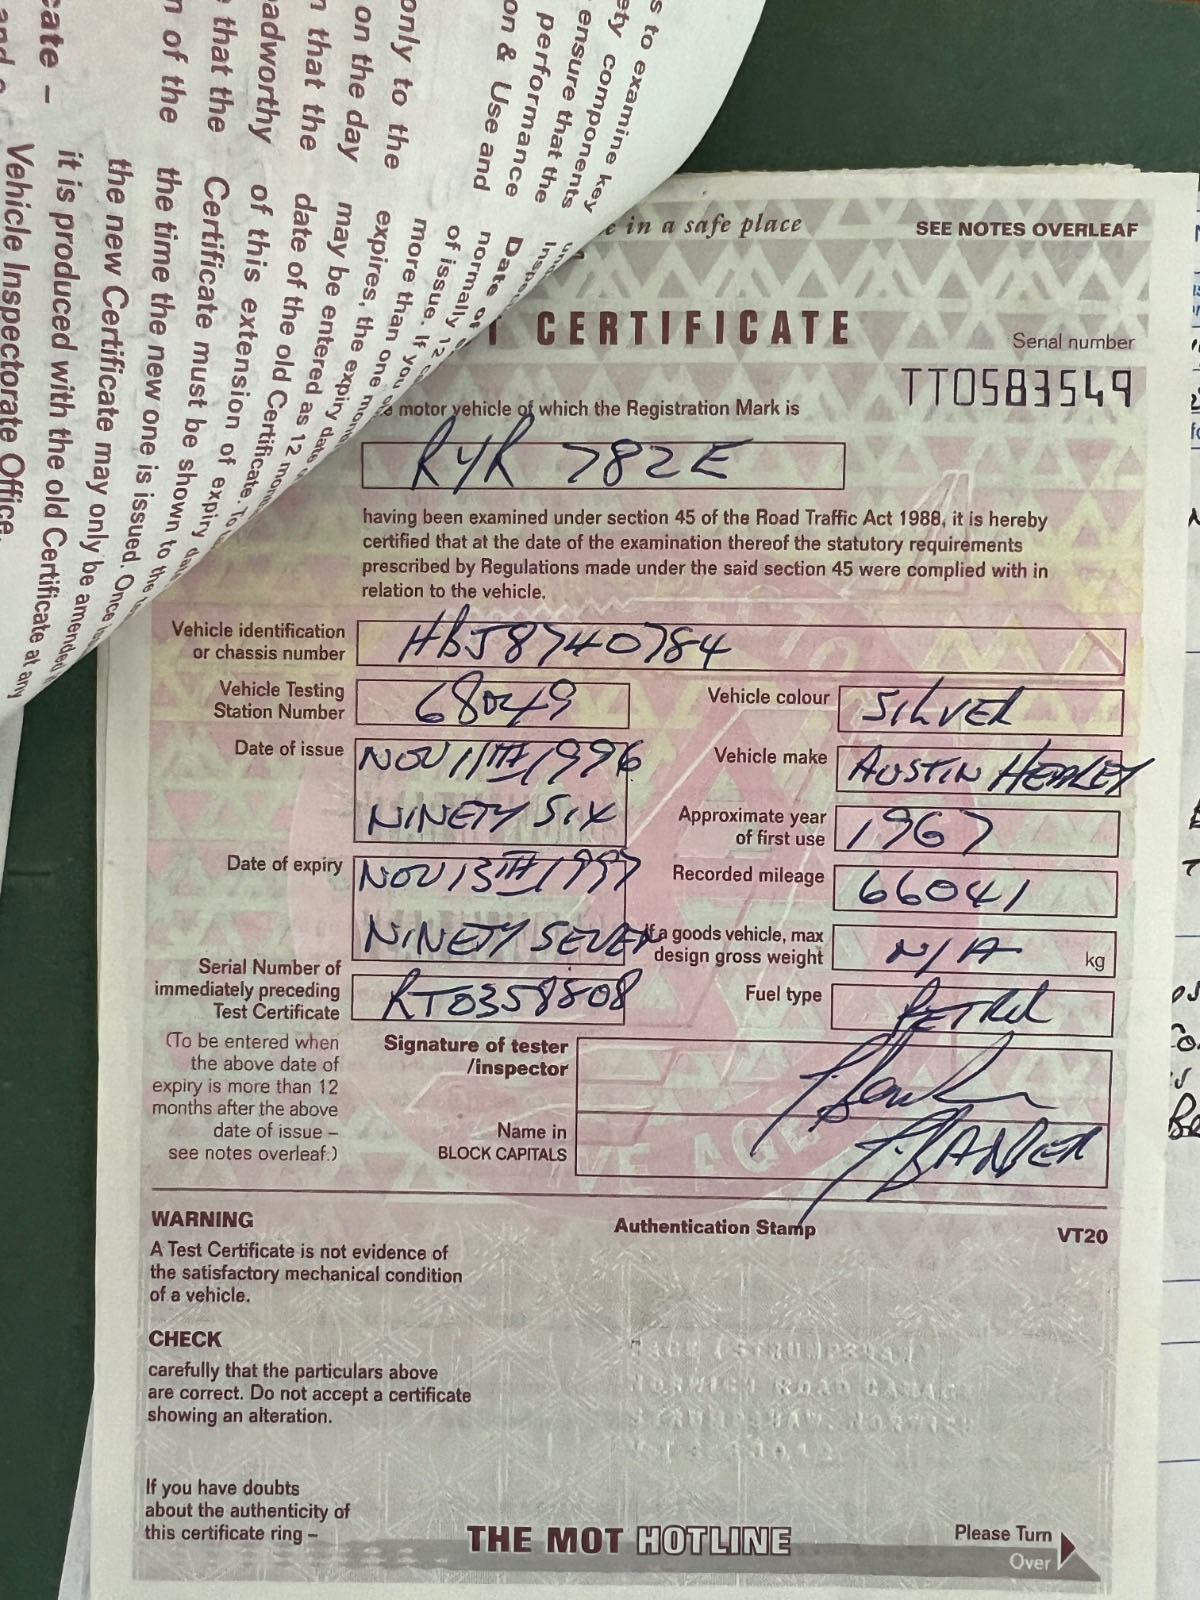 s to examine key
ety components
ensure that the
performance
on & Use and
only to the
on the day
n that the
adworthy
that the
n of the
cate –
Date of
normally 12
of issue. If you
more than one
expires, the
may be entered as 12
date of the old Certificate.
of this extension of expiry
Certificate must be shown to the
the time the new one is issued. Once
the new Certificate may only be amended
it is produced with the old Certificate at any
Vehicle Inspectorate Office.
in a safe place
SEE NOTES OVERLEAF
CERTIFICATE
Serial number
TT0583549
motor vehicle of which the Registration Mark is
RYR 782E
having been examined under section 45 of the Road Traffic Act 1988, it is hereby
certified that at the date of the examination thereof the statutory requirements
prescribed by Regulations made under the said section 45 were complied with in
relation to the vehicle.
Vehicle identification
or chassis number
HBJ8740784
Vehicle Testing
Station Number
Vehicle colour
SILVER
Date of issue
NOV 11TH 1996
NINETY SIX
Vehicle make
AUSTIN HEALEY
Approximate year
of first use
1967
Date of expiry
NOV 13TH 1997
NINETY SEVEN
Recorded mileage
66041
If a goods vehicle, max
design gross weight
N/A
kg
Serial Number of
immediately preceding
Test Certificate
RT0358808
Fuel type
PETROL
(To be entered when
the above date of
expiry is more than 12
months after the above
date of issue –
see notes overleaf.)
Signature of tester
/inspector
Name in
BLOCK CAPITALS
WARNING
A Test Certificate is not evidence of
the satisfactory mechanical condition
of a vehicle.
Authentication Stamp
VT20
CHECK
carefully that the particulars above
are correct. Do not accept a certificate
showing an alteration.
NORWICH ROAD
If you have doubts
about the authenticity of
this certificate ring –
THE MOT HOTLINE
Please Turn
Over